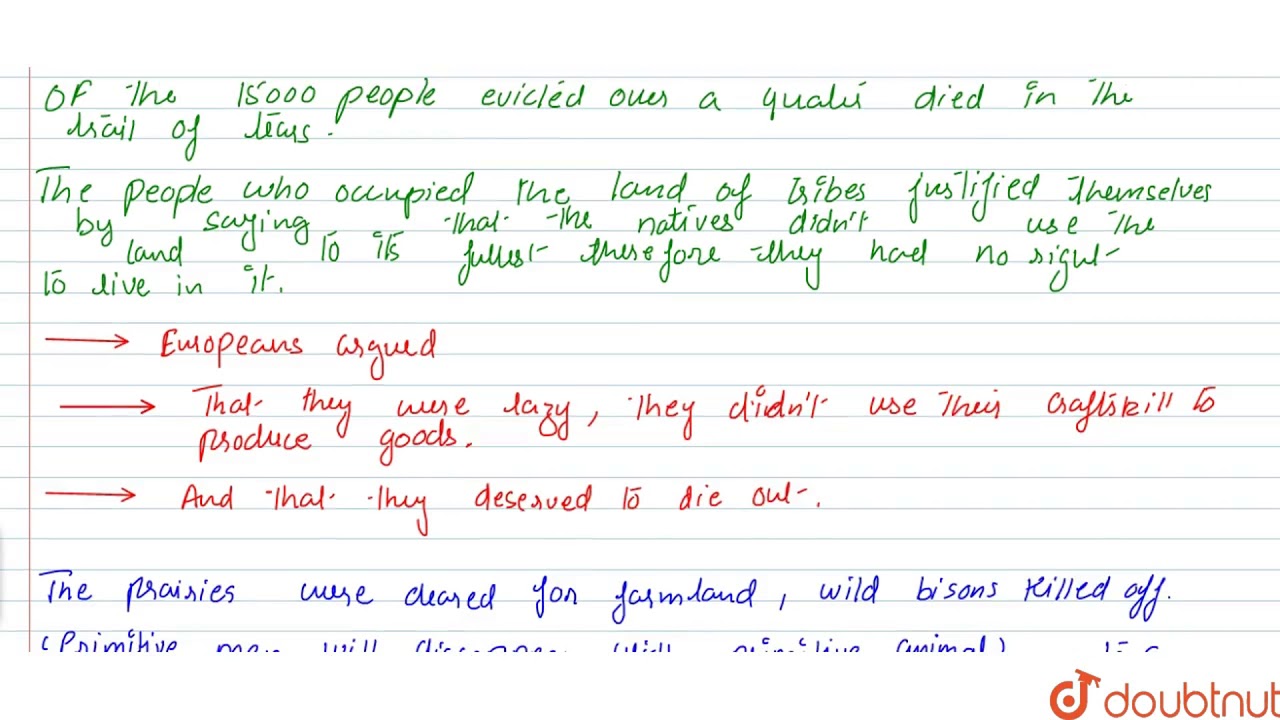 OF the 15000 people evicted over a quater died in the
trail of tears.
The people who occupied the land of tribes justified themselves
by saying that the natives didn't use the
land to its fullest therefore they had no right
to live in it.
→ Europeans argued
→ That they were lazy, they didn't use their craftskill to
produce goods.
→ And that they deserved to die out.
The prairies were cleared for farmland, wild bisons killed off.
(Primitive men will disappear with primitive animal)
doubtnut